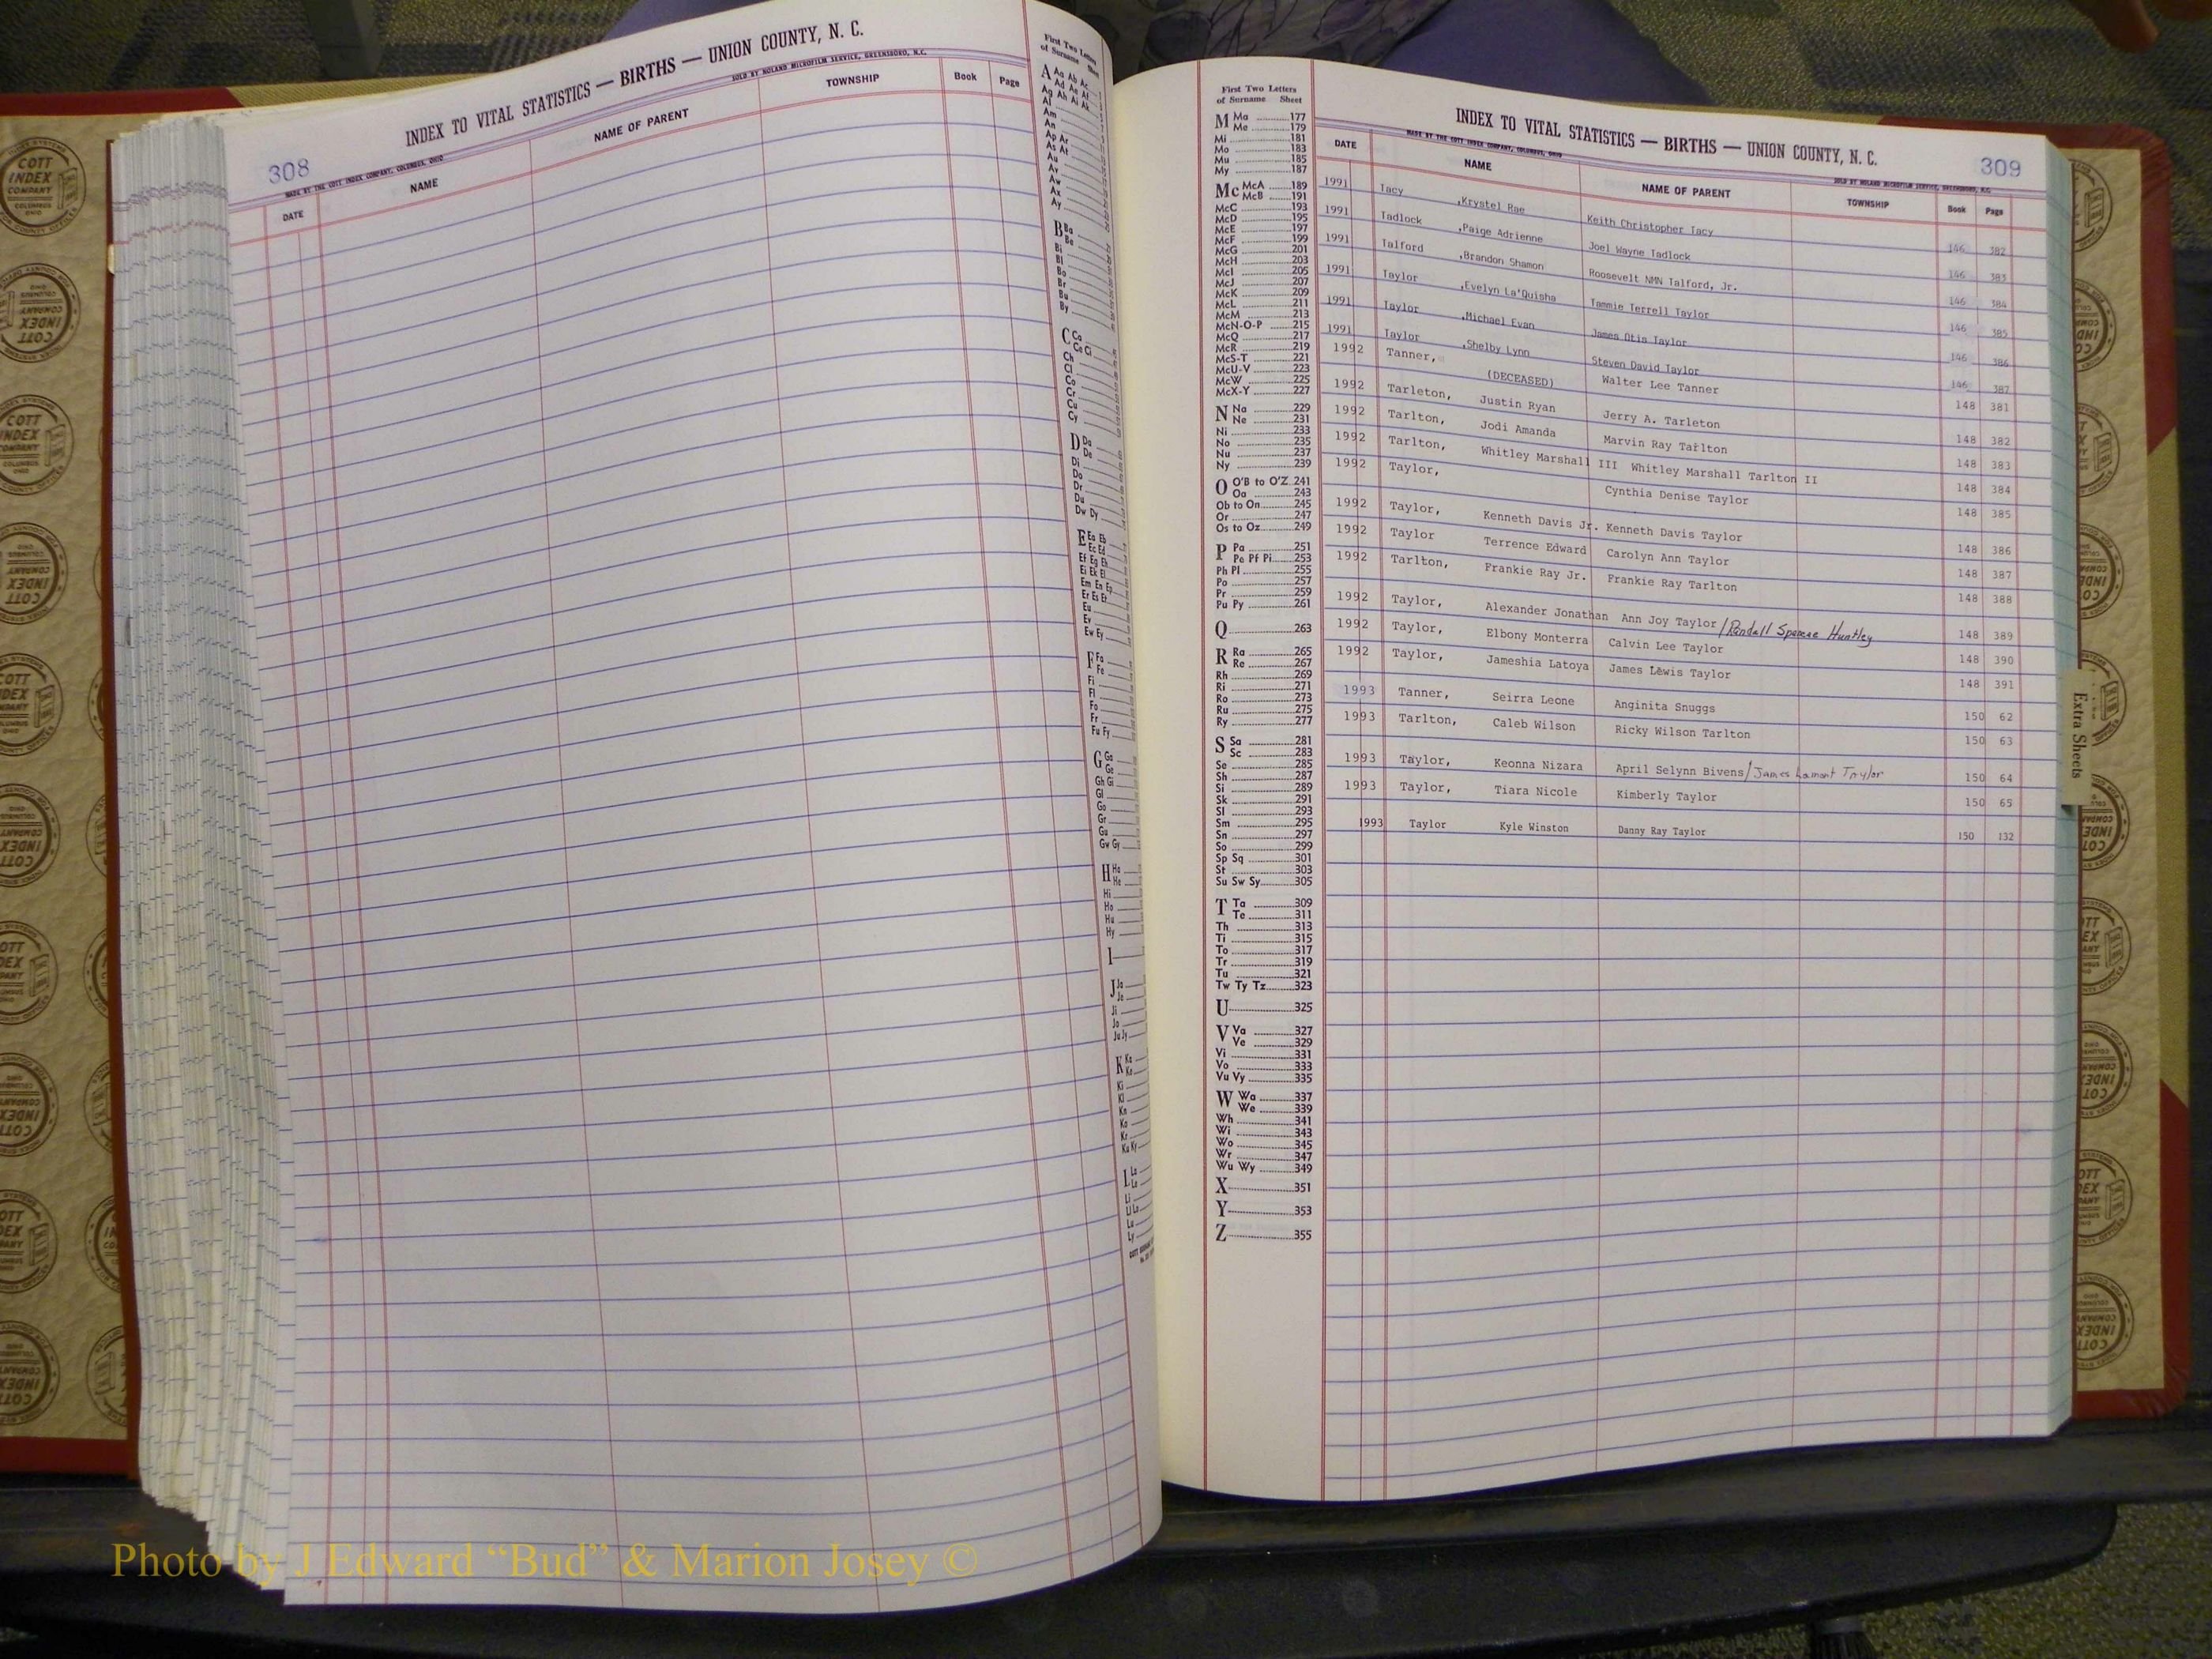 INDEX TO VITAL STATISTICS — BIRTHS — UNION COUNTY, N. C.
308
MADE BY THE COTT INDEX COMPANY, COLUMBUS, OHIO
SOLD BY NOLAND MICROFILM SERVICE, GREENSBORO, N.C.
DATE NAME NAME OF PARENT TOWNSHIP Book Page
First Two Letters
of Surname Sheet
A Aa Ab Ac
Ad Ae Af
Ag Ah Ai Ak
Al
Am
An
Ap Ar
As At
Au
Av
Aw
Ax
Ay
B Ba
Be
Bi
Bl
Bo
Br
Bu
By
C Ca
Ce Ci
Ch
Cl
Co
Cr
Cu
Cy
D Da
De
Di
Do
Dr
Du
Dw Dy
E Ea Eb
Ec Ed
Ef Eg Eh
Ei Ek El
Em En Ep
Er Es Et
Eu
Ev
Ew Ey
F Fa
Fe
Fi
Fl
Fo
Fr
Fu Fy
G Ga
Ge
Gh Gi
Gl
Go
Gr
Gu
Gw Gy
H Ha
He
Hi
Ho
Hu
Hy
I
J Ja
Je
Ji
Jo
Ju Jy
K Ka
Ke
Ki
Kl
Kn
Ko
Kr
Ku Ky
L La
Le
Li
Ll Lo
Lu
Ly
First Two Letters
of Surname Sheet
M Ma 177
Me 179
Mi 181
Mo 183
Mu 185
My 187
Mc McA 189
McB 191
McC 193
McD 195
McE 197
McF 199
McG 201
McH 203
McI 205
McJ 207
McK 209
McL 211
McM 213
McN-O-P 215
McQ 217
McR 219
McS-T 221
McU-V 223
McW 225
McX-Y 227
N Na 229
Ne 231
Ni 233
No 235
Nu 237
Ny 239
O O'B to O'Z 241
Oa 243
Ob to On 245
Or 247
Os to Oz 249
P Pa 251
Pe Pf Pi 253
Ph Pl 255
Po 257
Pr 259
Pu Py 261
Q 263
R Ra 265
Re 267
Rh 269
Ri 271
Ro 273
Ru 275
Ry 277
S Sa 281
Sc 283
Se 285
Sh 287
Si 289
Sk 291
Sl 293
Sm 295
Sn 297
So 299
Sp Sq 301
St 303
Su Sw Sy 305
T Ta 309
Te 311
Th 313
Ti 315
To 317
Tr 319
Tu 321
Tw Ty Tz 323
U 325
V Va 327
Ve 329
Vi 331
Vo 333
Vu Vy 335
W Wa 337
We 339
Wh 341
Wi 343
Wo 345
Wr 347
Wu Wy 349
X 351
Y 353
Z 355
INDEX TO VITAL STATISTICS — BIRTHS — UNION COUNTY, N. C.
309
MADE BY THE COTT INDEX COMPANY, COLUMBUS, OHIO
SOLD BY NOLAND MICROFILM SERVICE, GREENSBORO, N.C.
DATE NAME NAME OF PARENT TOWNSHIP Book Page
1991 Tacy ,Krystel Rae Keith Christopher Tacy 146 382
1991 Tadlock ,Paige Adrienne Joel Wayne Tadlock 146 383
1991 Talford ,Brandon Shamon Roosevelt NMN Talford, Jr. 146 384
1991 Taylor ,Evelyn La'Quisha Tammie Terrell Taylor 146 385
1991 Taylor ,Michael Evan James Otis Taylor 146 386
1991 Taylor ,Shelby Lynn Steven David Taylor 146 387
1992 Tanner, (DECEASED) Walter Lee Tanner 148 381
1992 Tarleton, Justin Ryan Jerry A. Tarleton 148 382
1992 Tarlton, Jodi Amanda Marvin Ray Tarlton 148 383
1992 Tarlton, Whitley Marshall III Whitley Marshall Tarlton II 148 384
1992 Taylor, Cynthia Denise Taylor 148 385
1992 Taylor, Kenneth Davis Jr. Kenneth Davis Taylor 148 386
1992 Taylor Terrence Edward Carolyn Ann Taylor 148 387
1992 Tarlton, Frankie Ray Jr. Frankie Ray Tarlton 148 388
1992 Taylor, Alexander Jonathan Ann Joy Taylor /Randall Spencer Huntley 148 389
1992 Taylor, Elbony Monterra Calvin Lee Taylor 148 390
1992 Taylor, Jameshia Latoya James Lewis Taylor 148 391
1993 Tanner, Seirra Leone Anginita Snuggs 150 62
1993 Tarlton, Caleb Wilson Ricky Wilson Tarlton 150 63
1993 Taylor, Keonna Nizara April Selynn Bivens/James Lamont Taylor 150 64
1993 Taylor, Tiara Nicole Kimberly Taylor 150 65
1993 Taylor Kyle Winston Danny Ray Taylor 150 132
Extra Sheets
COTT INDEX COMPANY COLUMBUS OHIO
Photo by J Edward “Bud” & Marion Josey ©